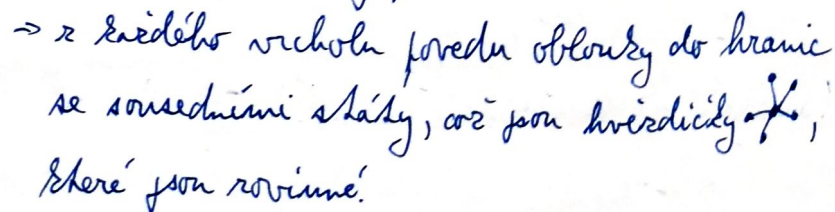 ⇒ z každého vrcholu povedu oblouky do hranic
se sousedními státy, což jsou hvězdičky,
které jsou rovinné.